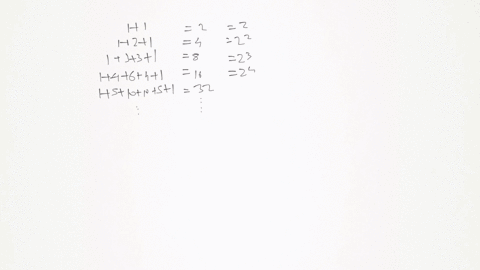 1+1 = 2 = 2
1+2+1 = 4 = 2²
1+3+3+1 = 8 = 2³
1+4+6+4+1 = 16 = 2⁴
1+5+10+10+5+1 = 32
⋮ ⋮